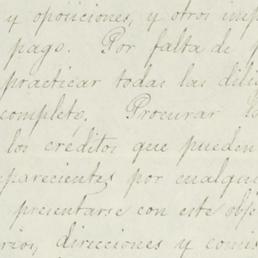 y oposiciones, y otros imp
pago. Por falta de p
practicar todas las dili
completo. Procurar l
los créditos que pueden
parecientes por cualqui
presentarse con este obje
rios, direcciones y comis